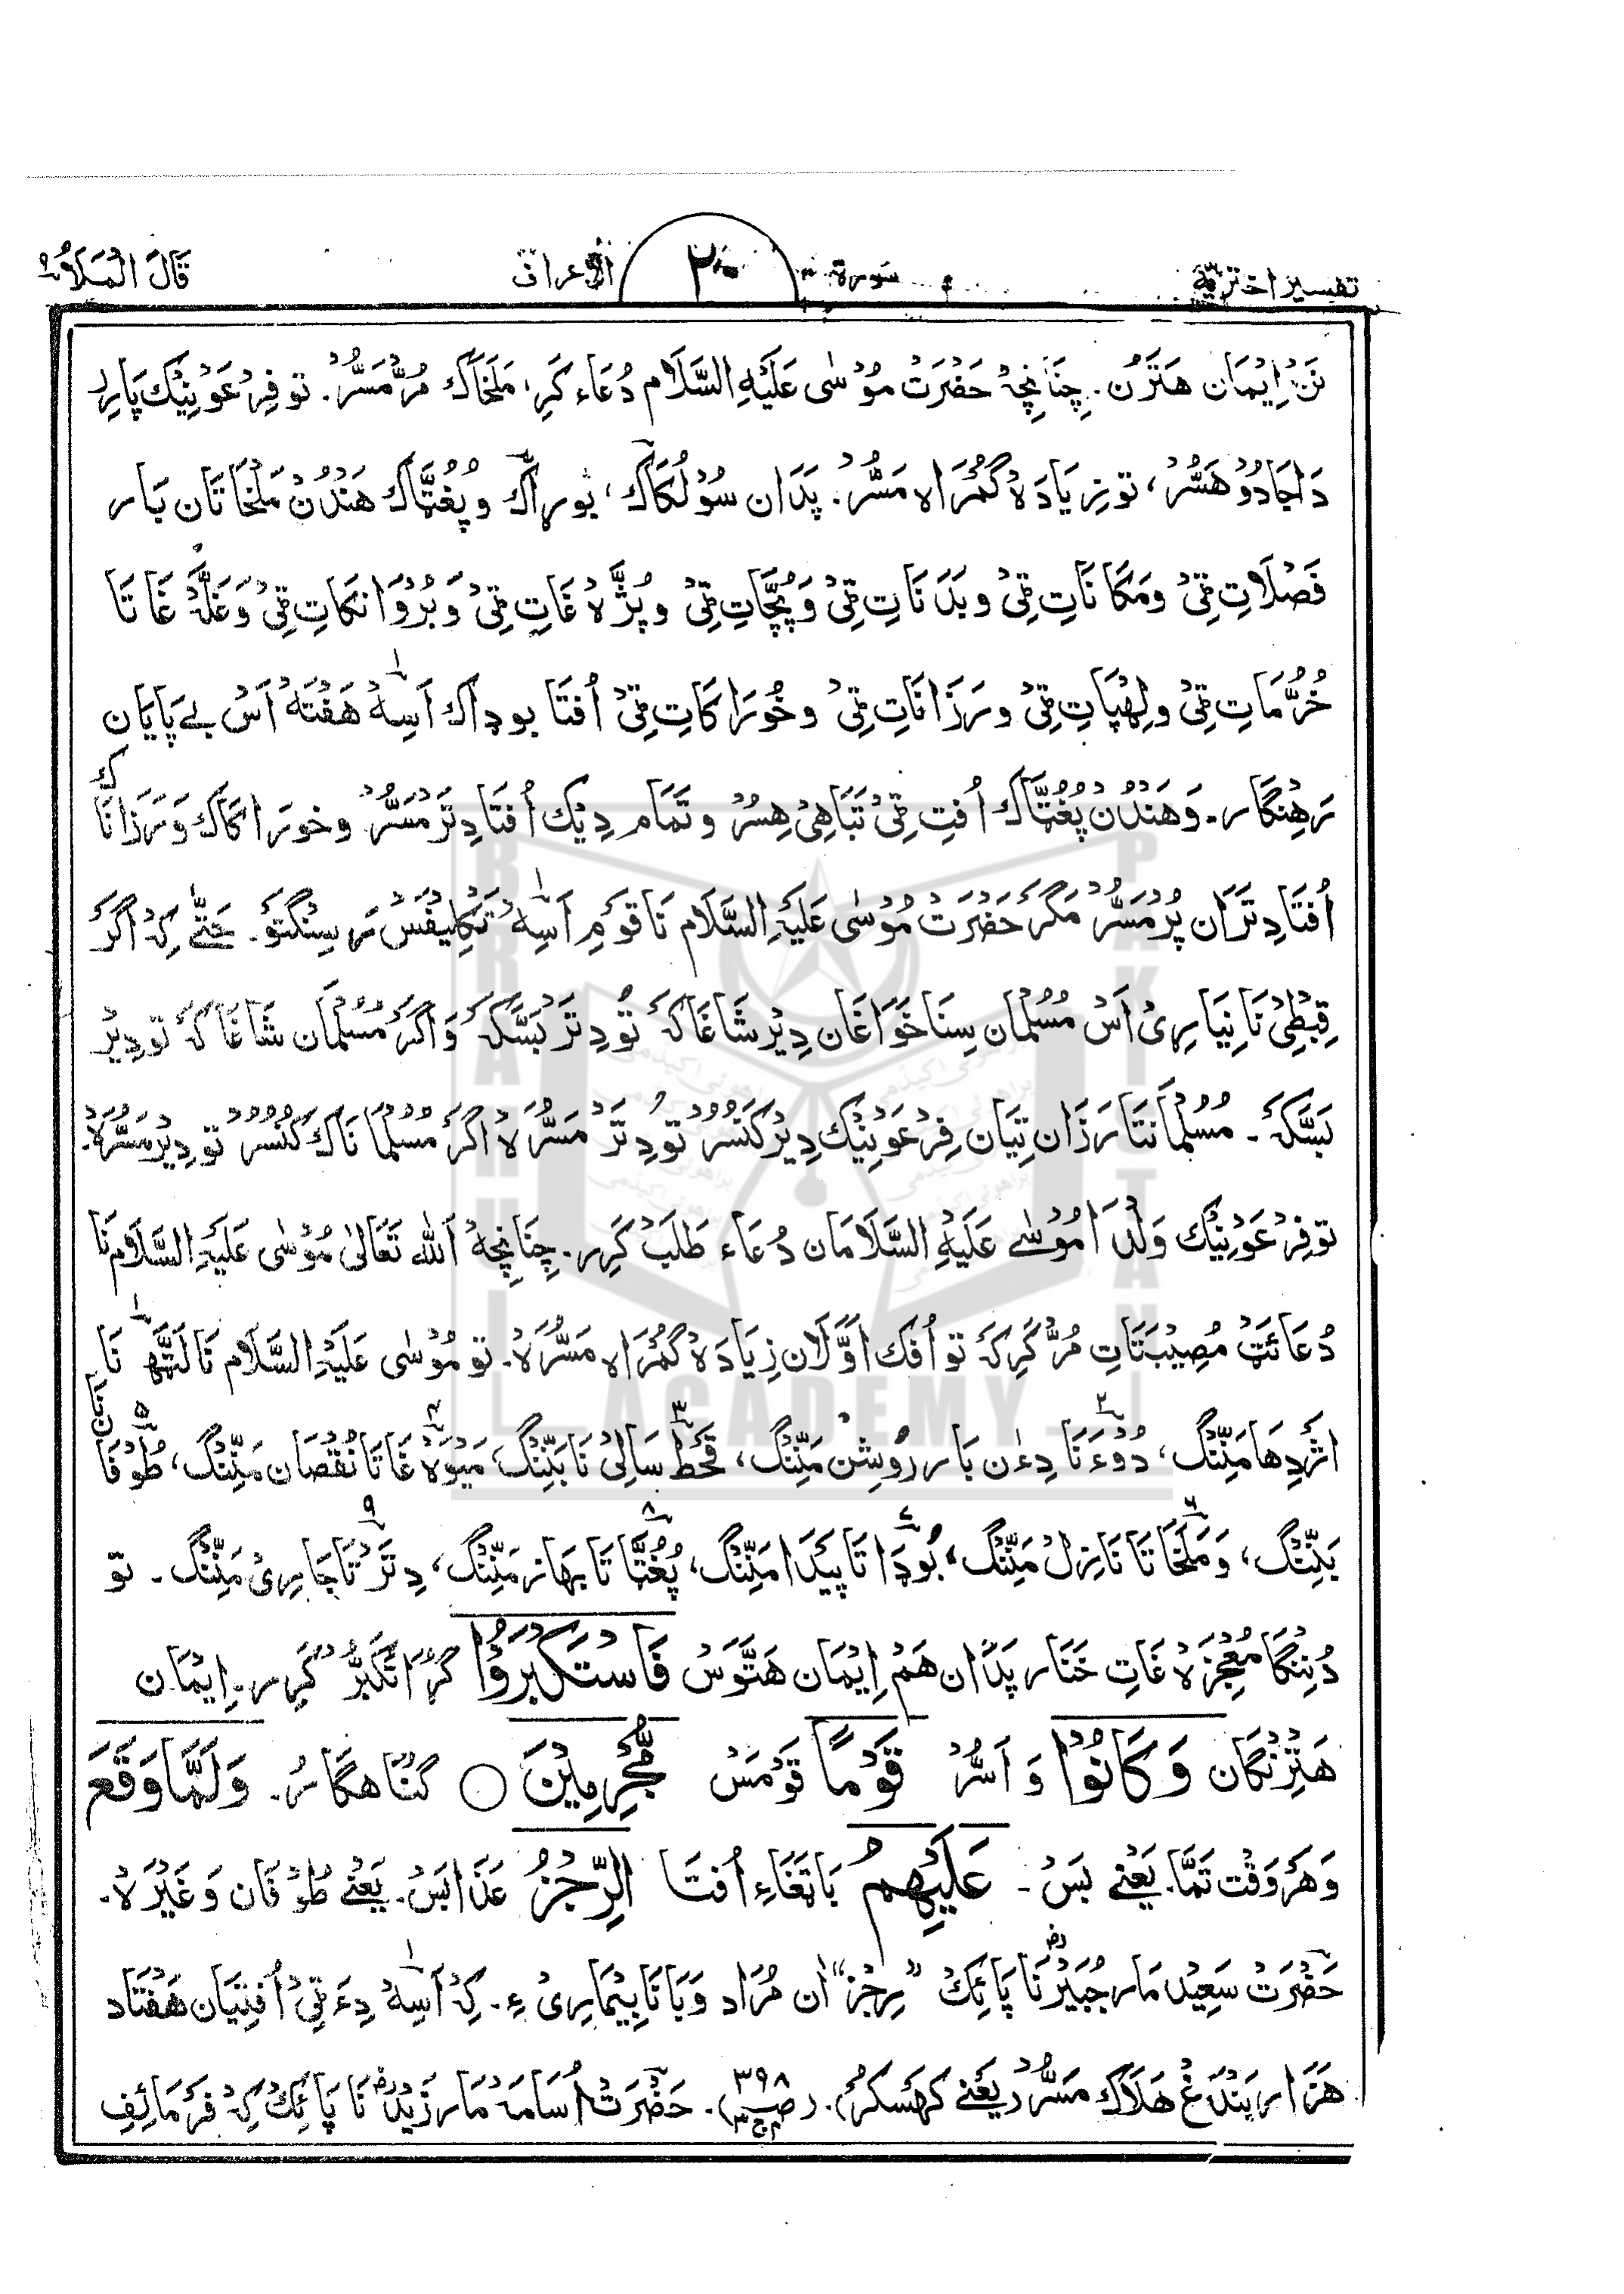 تفسير اختريّه سورة ٢٠ الاعراف قَالَ الْمَلَأُ ٩
نَنْ اِيْمَان هَتَرُن. چِنَانِچِهْ حَضْرَتْ مُوْسٰى عَلَيْهِ السَّلَام دُعَاء كَرِ، مَلَخَاك مُرّْ مَسُّرْ. تو فِرْعَوْنِيْك پَارِر
دَا جَادُوْ هَسُّرْ، تو زِيَادَهْ گُمْرَاه مَسُّرْ. پَدَان سُوْلُكَاك، بُورِاك وپُغُٹَّاك هَنْدُنْ مَلَخَاتَان بَار
فَصْلَاتِ ٹِیْ ومَكَانَاتِ ٹِیْ وبَدَنَاتِ ٹِیْ وَپُچَّاتِ ٹِیْ وپُژَّهْ غَاتِ ٹِیْ وَبُرْوَانكَاتِ ٹِیْ وَغَلَّهْ غَاتَا
خُرُّمَاتِ ٹِیْ ولِهْپَاتِ ٹِیْ ورَزَانَاتِ ٹِیْ وخُورَاكَاتِ ٹِیْ اُفتَا بوداك اَسِهْ هَفْتَهْ اَسْ بے پَايَان
رَهِنْگار. وَهَنْدُنْ پُغُٹَّاك اُفتِ ٹِیْ تَبَاهِیْ هِسُرْ وتَمَام دِيْك اُفتَا دِتَرْ مَسُّرْ وخورَاكَاك وَرَزَانَاك
اُفتَا دِتَرَان پُرْ مَسُّرْ مَگَرْ حَضْرَتْ مُوْسٰى عَلَيْهِ السَّلَام نَا قومِ اَسِهْ تَكِلِيْفَسْ رَسِنْگتَوْ. حَتّٰے كِهْ اَگَرْ
قِبْطِیْ نَا نِيَارِیْ اَسْ مُسُلْمَان سِنَا خَوَاغَان دِيْر شَاغَاكَهْ تُو دِتَرْ بَسَّكَهْ وَاگَرْ مُسُلْمَان شَاغَاكَهْ تو دِيْر
بَسَّكَهْ. مُسُلْمَانتَا رَزَان تِيَان فِرْعَوْنِيْك دِيْر كُنُسُرْ تو دِتَرْ مَسُّرَهْ اگَرْ مُسُلْمَانَاك كُنُسُرْ تو دِيْر مَسُّرَهْ.
تو فِرْعَوْنِيْك وَلْدَا مُوْسٰے عَلَيْهِ السَّلَامَان دُعَاء طَلَبْ كَرِر. چِنَانِچِهْ اَللّٰه تَعَالٰى مُوْسٰى عَلَيْهِ السَّلَام نَا
دُعَائَتْ مُصِيْبَتَاتِ مُرّْ كَرِكَهْ تو اُفك اوَّلَان زِيَادَهْ گُمْرَاه مَسُّرَهْ. تو مُوْسٰى عَلَيْهِ السَّلَام نَا لَٹَّهْ نَا
اژْدِهَا مَنِّنْگ، دُوْءَ نَا دِءٰن بَار رُوشِن مَنِّنْگ، قَحْطْ سَالِیْ نَا بَنِّنْگ، مَيْوَهْ غَاتَا نُقْصَان مَنِّنْگ، طُوْفَانَا
بَنِّنْگ، وَمَلَخَاتَا نَازِلْ مَنِّنْگ، بُودَاتَا پَيْدَا مَنِّنْگ، پُغُٹَّاتَا بهَاز مَنِّنْگ، دِتَرْتَا جَارِیْ مَنِّنْگ. تو
دُنِنْگَا مُعْجِزَهْ غَاتِ خَنَار پَدَان هَمْ اِيْمَان هَتَّوَسْ فَاسْتَكْبَرُوْا گُرَا تَكَبُّرْ كَرِر. اِيْمَان
هَتِنْگَان وَكَانُوْا وَ اَسُّرْ قَوْمًا قَوْمَسْ مُّجْرِمِيْنَ ○ گُنَاهگارْ. وَلَمَّا وَقَعَ
وَهَرْوَقْت تَمَّا. يَعْنِے بَسْ. عَلَيْهِمُ بَاتْغَاءِ اُفتَا الرِّجْزُ عَذَابَسْ. يَعْنِے طُوْفَان وَغَيْرَهْ.
حَضْرَتْ سَعِيْد مَار جُبَيْرْ رض نَا پَائِكْ "رِجْز" اَن مُرَاد وَبَا نَا بِيْمَارِیْ ءِ. كِهْ اَسِهْ دِءَ ٹِیْ اُفتِيَان هَفْتَاد
هَزَار بَنْدَغْ هَلَاك مَسُّرْ (يَعْنِے كَهِسْكُرْ). (ص ٣٩٨ م ج ٣). حَضْرَتْ اُسَامَهْ مَار زَيْدْ رض نَا پَائِكْ كِهْ فَرْمَائِفِ